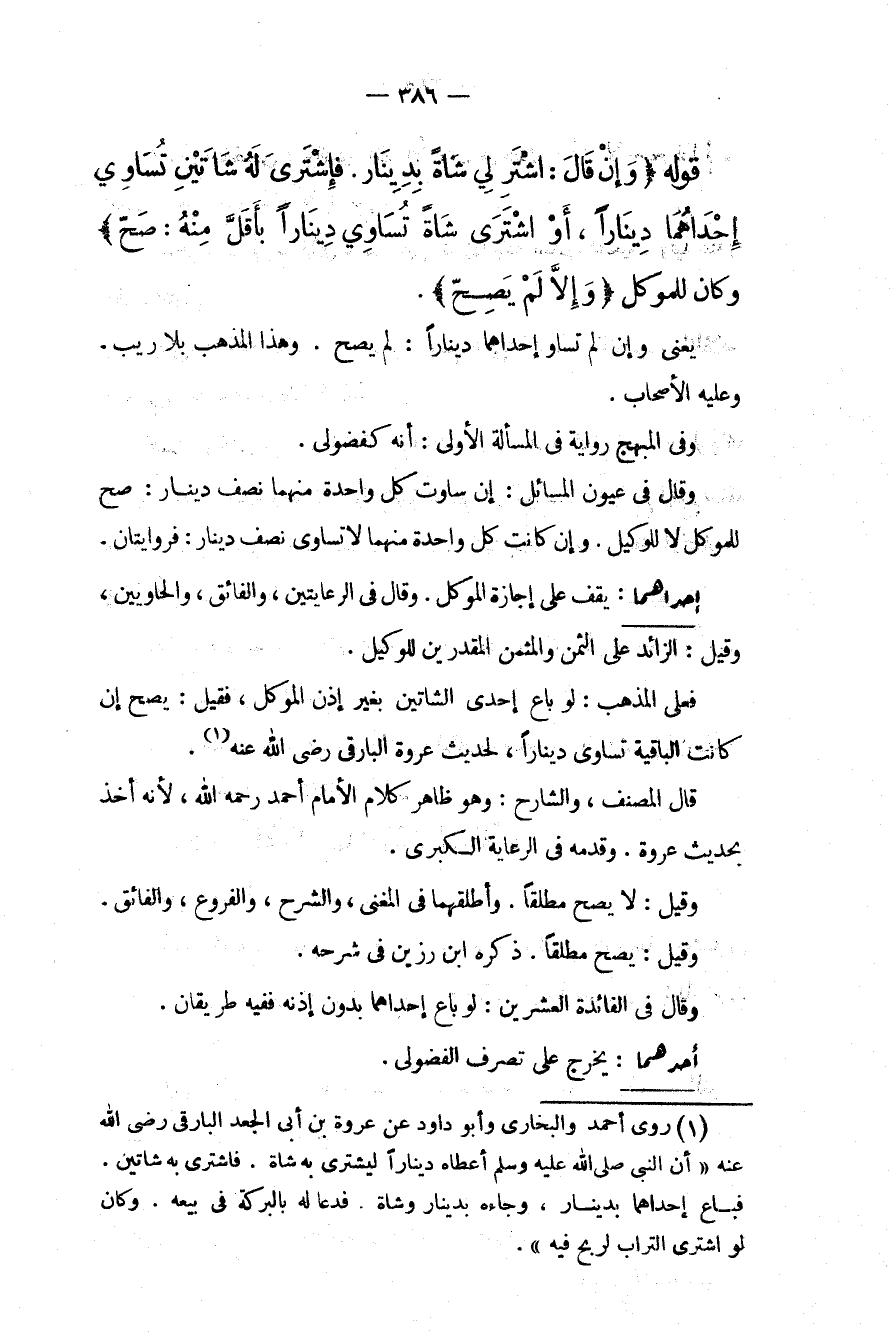 — ٣٨٦ —
قوله ﴿ وَإِنْ قَالَ : اشْتَرِ لِي شَاةً بِدِينَار . فإِشْتَرَى لَهُ شَاتَيْنِ تُسَاوِي
إِحْدَاهُمَا دِينَاراً ، أَوْ اشْتَرَى شَاةً تُسَاوِي دِينَاراً بأَقَلَّ مِنْهُ : صَحّ ﴾
وكان للموكل ﴿ وَإِلاَّ لَمْ يَصِحّ ﴾ .
يعنى وإن لم تساو إحداهما ديناراً : لم يصح . وهذا المذهب بلا ريب .
وعليه الأصحاب .
وفى المبهج رواية فى المسألة الأولى : أنه كفضولى .
وقال فى عيون المسائل : إن ساوت كل واحدة منهما نصف دينار : صح
للموكل لا للوكيل . وإن كانت كل واحدة منهما لا تساوى نصف دينار : فروايتان .
إحداهما : يقف على إجازة الموكل . وقال فى الرعايتين ، والفائق ، والحاويين ،
وقيل : الزائد على الثمن والمثمن المقدرين للوكيل .
فعلى المذهب : لو باع إحدى الشاتين بغير إذن الموكل ، فقيل : يصح إن
كانت الباقية تساوى ديناراً ، لحديث عروة البارقى رضى الله عنه(١) .
قال المصنف ، والشارح : وهو ظاهر كلام الأمام أحمد رحمه الله ، لأنه أخذ
بحديث عروة . وقدمه فى الرعاية الكبرى .
وقيل : لا يصح مطلقاً . وأطلقهما فى المغنى ، والشرح ، والفروع ، والفائق .
وقيل : يصح مطلقاً . ذكره ابن رزين فى شرحه .
وقال فى الفائدة العشرين : لو باع إحداهما بدون إذنه ففيه طريقان .
أحدهما : يخرج على تصرف الفضولى .
(١) روى أحمد والبخارى وأبو داود عن عروة بن أبى الجعد البارقى رضى الله
عنه « أن النبى صلى الله عليه وسلم أعطاه ديناراً ليشترى به شاة . فاشترى به شاتين .
فباع إحداهما بدينار ، وجاءه بدينار وشاة . فدعا له بالبركة فى بيعه . وكان
لو اشترى التراب لربح فيه » .